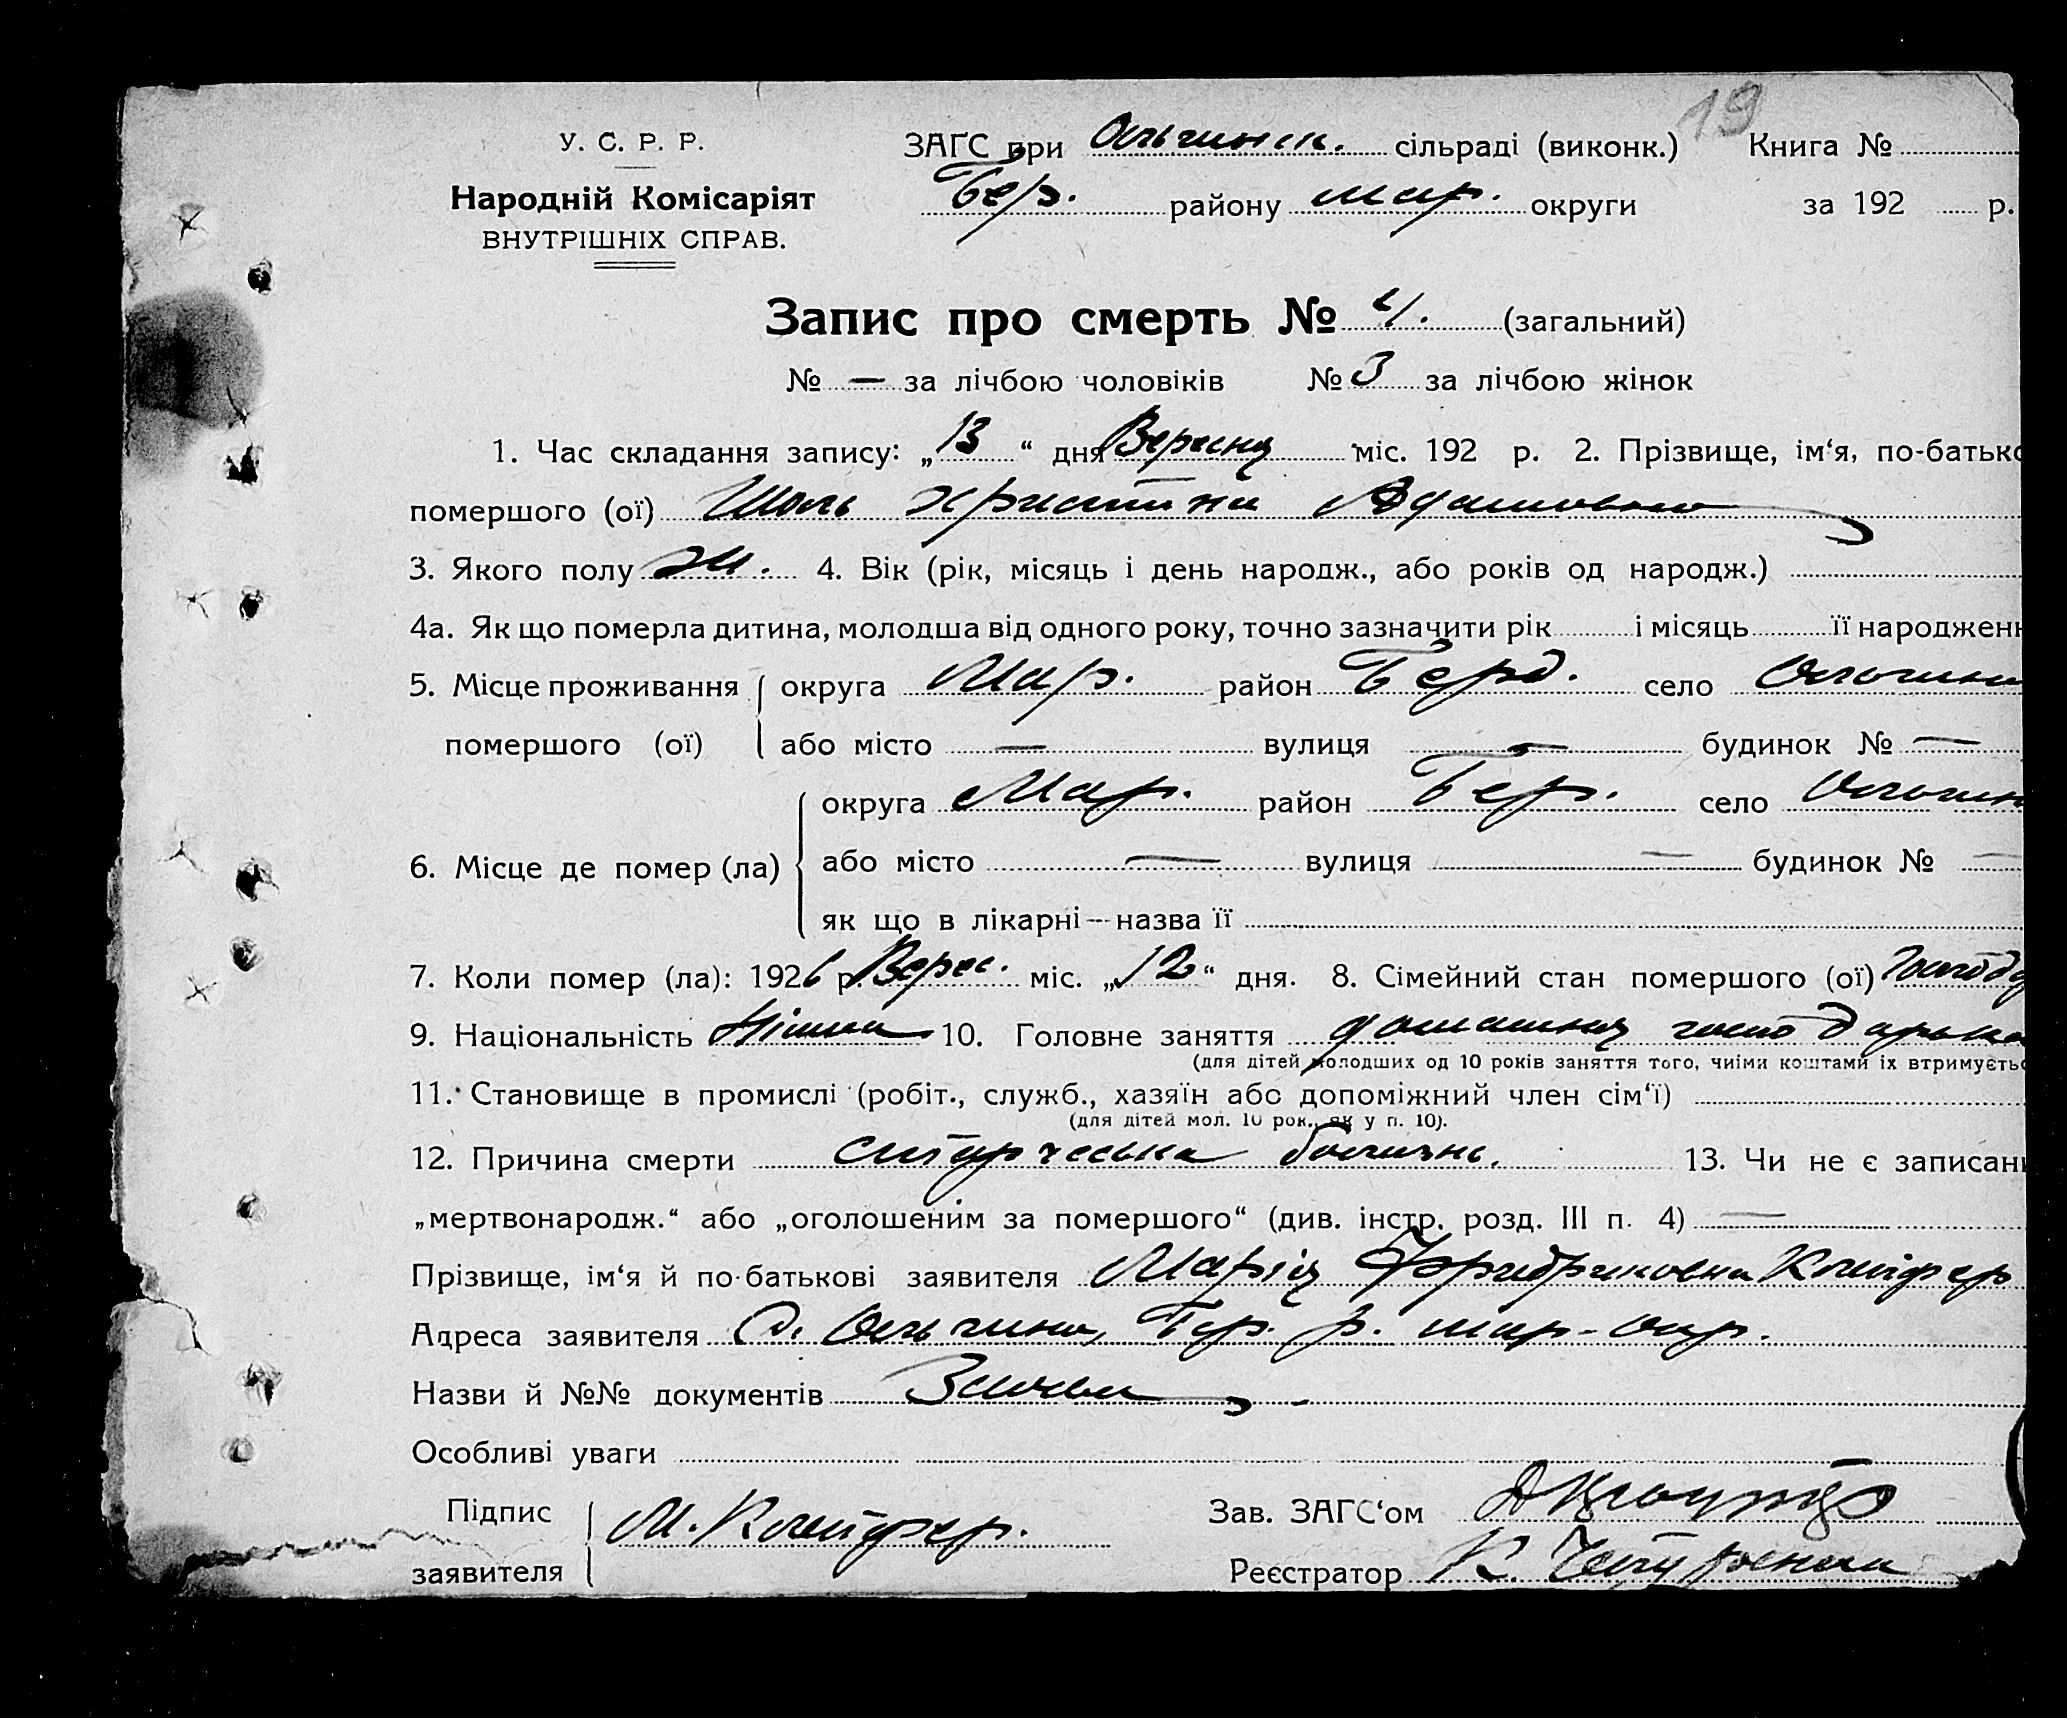 19
У. С. Р. Р.
Народній Комісаріят
ВНУТРІШНІХ СПРАВ.
ЗАГС при Ольгинск. сільраді (виконк.) Книга №
Бер. району Мар. округи за 192 р.
Запис про смерть № 4. (загальний)
№ — за лічбою чоловіків № 3 за лічбою жінок
1. Час складання запису: „13“ дня Вересня міс. 192 р. 2. Прізвище, ім‘я, по-батько
помершого (ої) Шоль Христина Адамовна
3. Якого полу Ж. 4. Вік (рік, місяць і день народж., або років од народж.)
4а. Як що померла дитина, молодша від одного року, точно зазначити рік і місяць її народжен
5. Місце проживання округа Мар. район Берд. село Ольгин
помершого (ої) або місто — вулиця — будинок № —
6. Місце де помер (ла) округа Мар. район Бер. село Ольгин
або місто — вулиця — будинок № —
як що в лікарні — назва її
7. Коли помер (ла): 1926 р. Верес. міс. „12“ дня. 8. Сімейний стан помершого (ої)
9. Національність Німка 10. Головне заняття домашня господарька
(для дітей молодших од 10 років заняття того, чиїми коштами їх втримуєтьс
11. Становище в промислі (робіт., служб., хазяїн або допоміжний член сім‘ї)
(для дітей мол. 10 рок., як у п. 10).
12. Причина смерти старческа болизнь. 13. Чи не є записан
„мертвонародж.“ або „оголошеним за помершого“ (див. інстр. розд. III п. 4) —
Прізвище, ім‘я й по-батькові заявителя Марія Фридриковна Клейфер
Адреса заявителя С. Ольгина, Бер. р. Мар-окр.
Назви й №№ документів
Особливі уваги
Підпис
заявителя М. Клейфер.
Зав. ЗАГС‘ом
Реєстратор К.